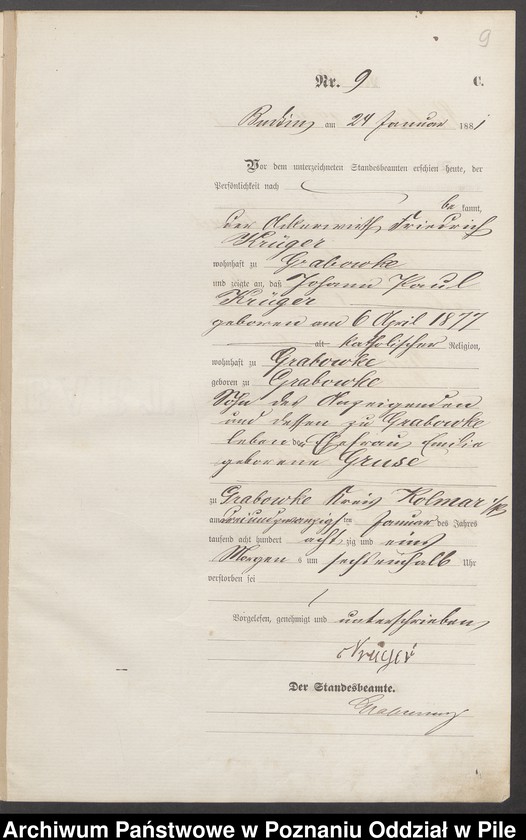 9
Nr. 9 C.
am 24 Januar 1881
Vor dem unterzeichneten Standesbeamten erschien heute, der
Persönlichkeit nach
be kannt,
der Ackerwirth Friedrich
Krüger
wohnhaft zu Grabowke
und zeigte an, daß Johann Paul
Krüger
geboren am 6 April 1877
alt katholischer Religion,
wohnhaft zu Grabowke
geboren zu Grabowke
Sohn des Anzeigenden
und dessen zu Grabowke
lebenden Ehefrau Emilie
geborene Gruse
zu Grabowke Kreis Kolmar i/P
am dreiundzwanzigsten Januar des Jahres
tausend acht hundert acht zig und eins
Morgens um sechseinhalb Uhr
verstorben sei
Vorgelesen, genehmigt und unterschrieben
Krüger
Der Standesbeamte.
Archiwum Państwowe w Poznaniu Oddział w Pile